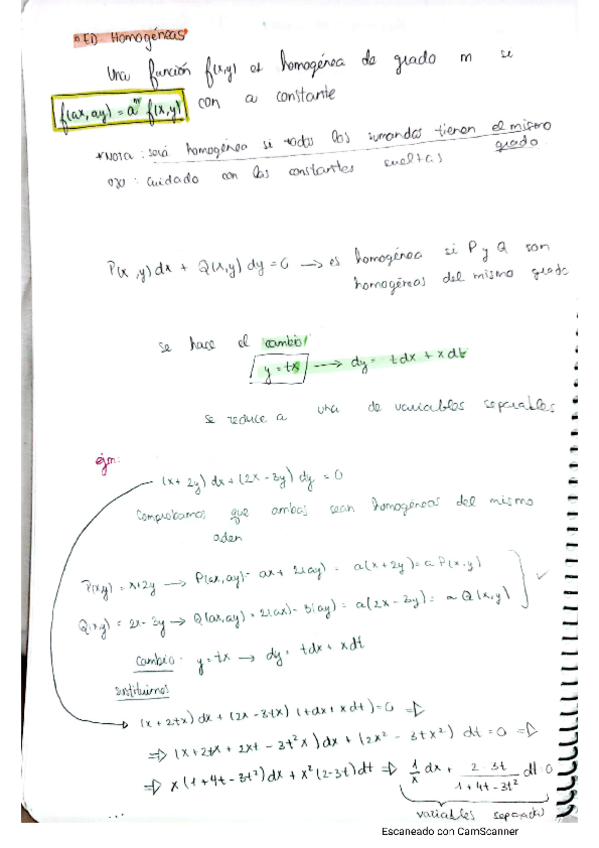 ED Homogéneas
Una función f(x,y) es homogénea de grado m se
f(ax,ay) = a^m f(x,y) con a constante
*Nota: será homogénea si todos los sumandos tienen el mismo grado.
ojo: cuidado con las constantes sueltas
P(x,y)dx + Q(x,y)dy = 0 → es homogénea si P y Q son
homogéneas del mismo grado
se hace el cambio/
y = tx ---> dy = tdx + xdt
se reduce a una de variables separables
ejm:
(x + 2y) dx + (2x - 3y) dy = 0
Comprobamos que ambas sean homogéneas del mismo
orden
P(x,y) = x+2y → P(ax,ay) = ax + 2(ay) = a(x+2y) = a P(x,y)
Q(x,y) = 2x-3y → Q(ax,ay) = 2(ax) - 3(ay) = a(2x - 3y) = a Q(x,y)
Cambio: y = tx → dy = tdx + xdt
sustituimos
(x + 2tx) dx + (2x - 3tx) (tdx + xdt) = 0 ⇒
⇒ (x + 2tx + 2xt - 3t²x) dx + (2x² - 3tx²) dt = 0 ⇒
⇒ x(1+4t-3t²)dx + x²(2-3t)dt ⇒ 1/x dx + 2-3t/1+4t-3t² dt = 0
variables separadas
...
Escaneado con CamScanner